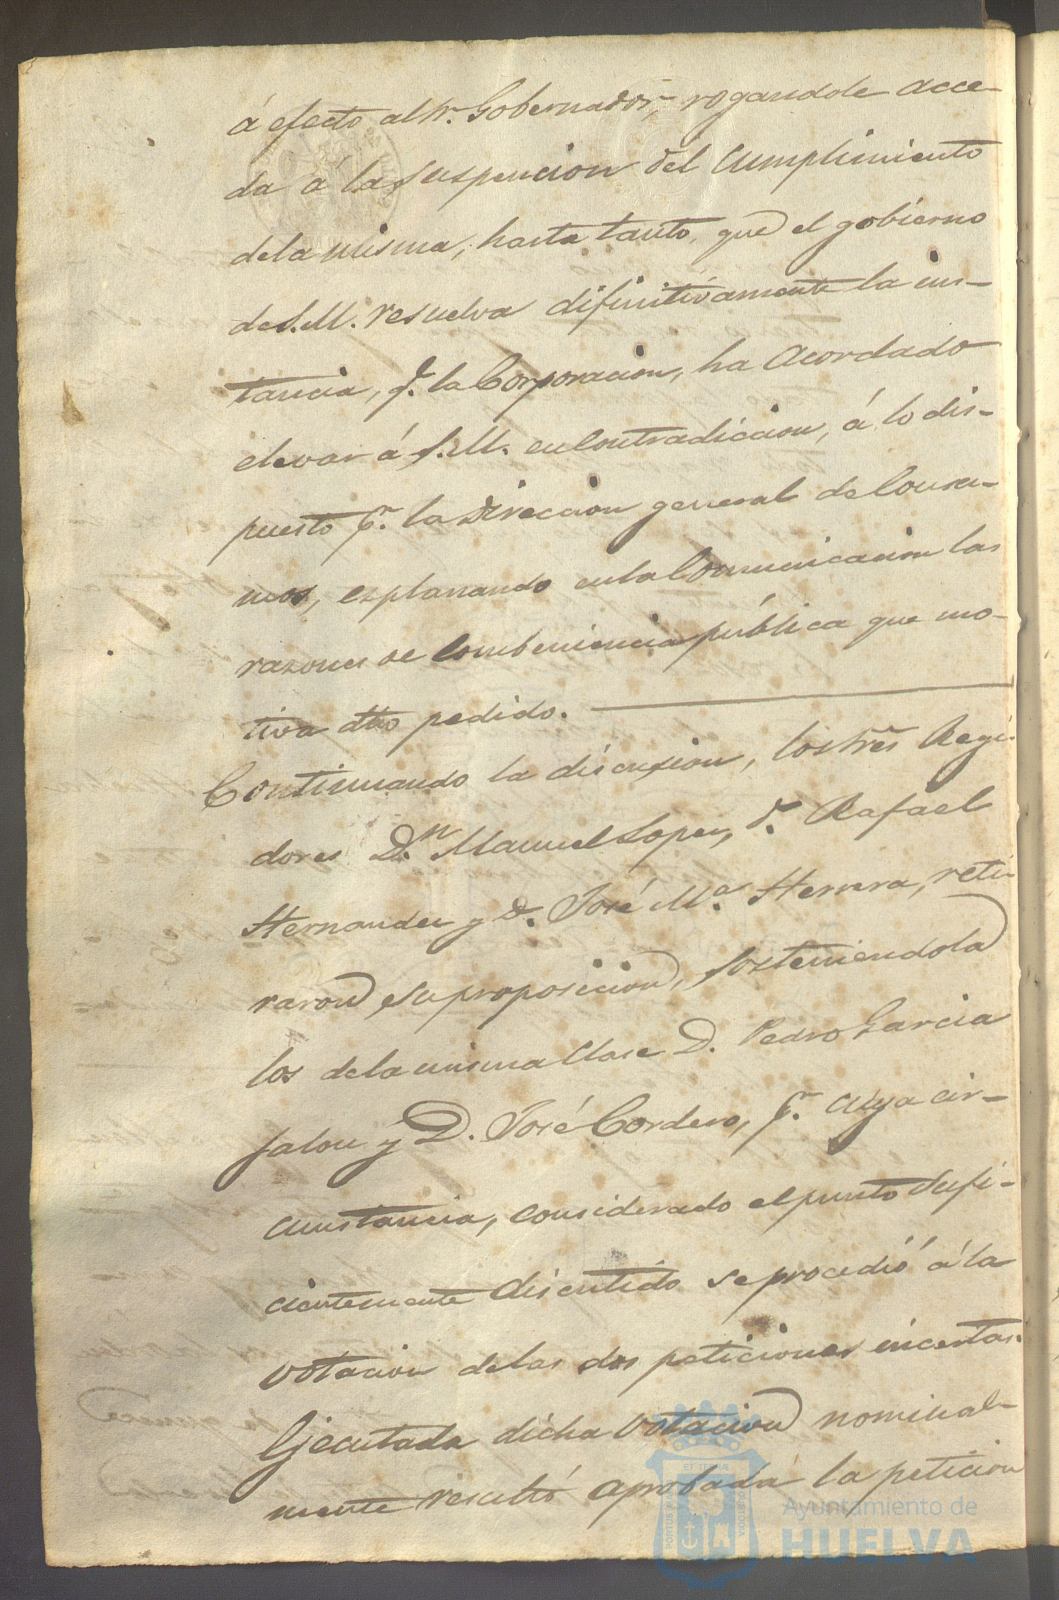 á efecto al Sr. Gobernador, rogandole acce-
da á la suspencion del cumplimiento
de la misma, hasta tanto, que el gobierno
de S.M. resuelva difinitivamente la ins-
tancia, q. la Corporacion, ha acordado
elevar á S.M. en contradiccion, á lo dis-
puesto pr. la Direccion general de Consu-
mos, esplanando en la Comunicacion las
razones de combeniencia pública que mo-
tiva dho pedido.
Continuando la discusion, los Sres Regi-
dores Dn. Manuel Lopez, D. Rafael
Hernandez y D. José Ma. Herrera, reti-
raron su proposicion, sosteniendola
los de la misma clase D. Pedro Garcia
Jalon y D. José Cordero, pr. cuya cir-
cunstancia, considerado el punto sufi-
cientemente discutido se procedió á la
votacion de las dos peticiones incertas.
Ejecutada dicha votacion nominal-
mente resultó aprobada la peticion
Ayuntamiento de
HUELVA